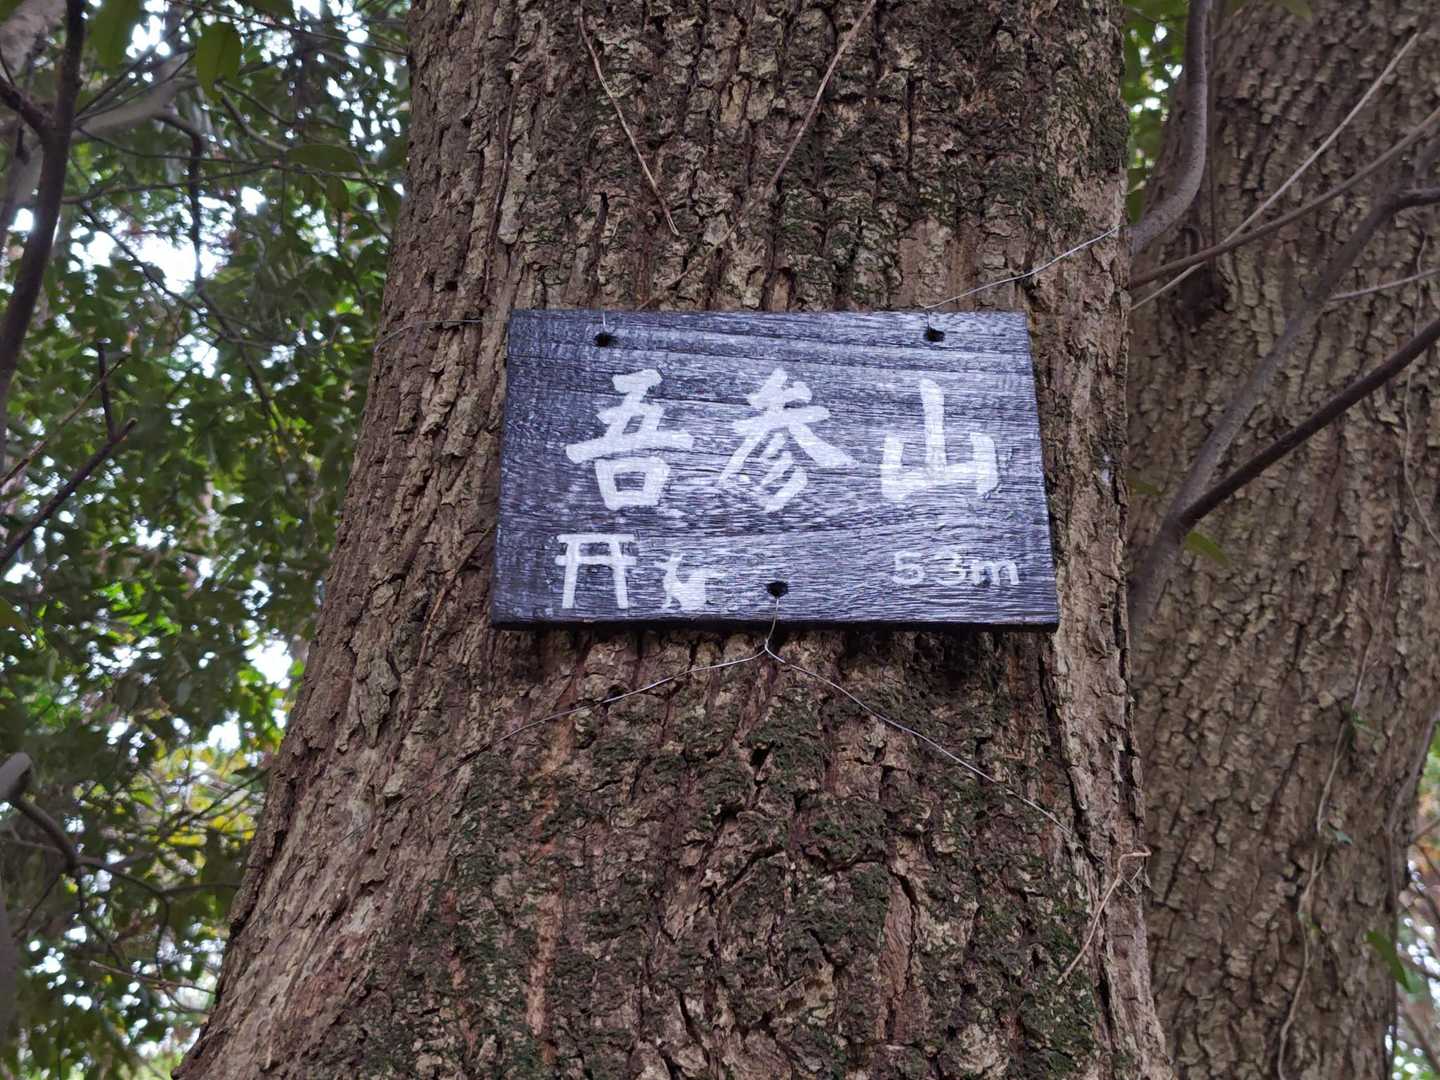 吾参山
53m